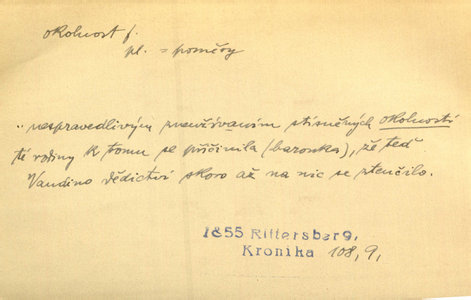 okolnost f.
pl. = poměry
„nespravedlivým zneužíváním stísněných okolností
té rodiny k tomu se přičinila (baronka), že teď
Vandino dědictví skoro až na nic se ztenčilo.
1855 Rittersberg,
Kronika 108, 9,